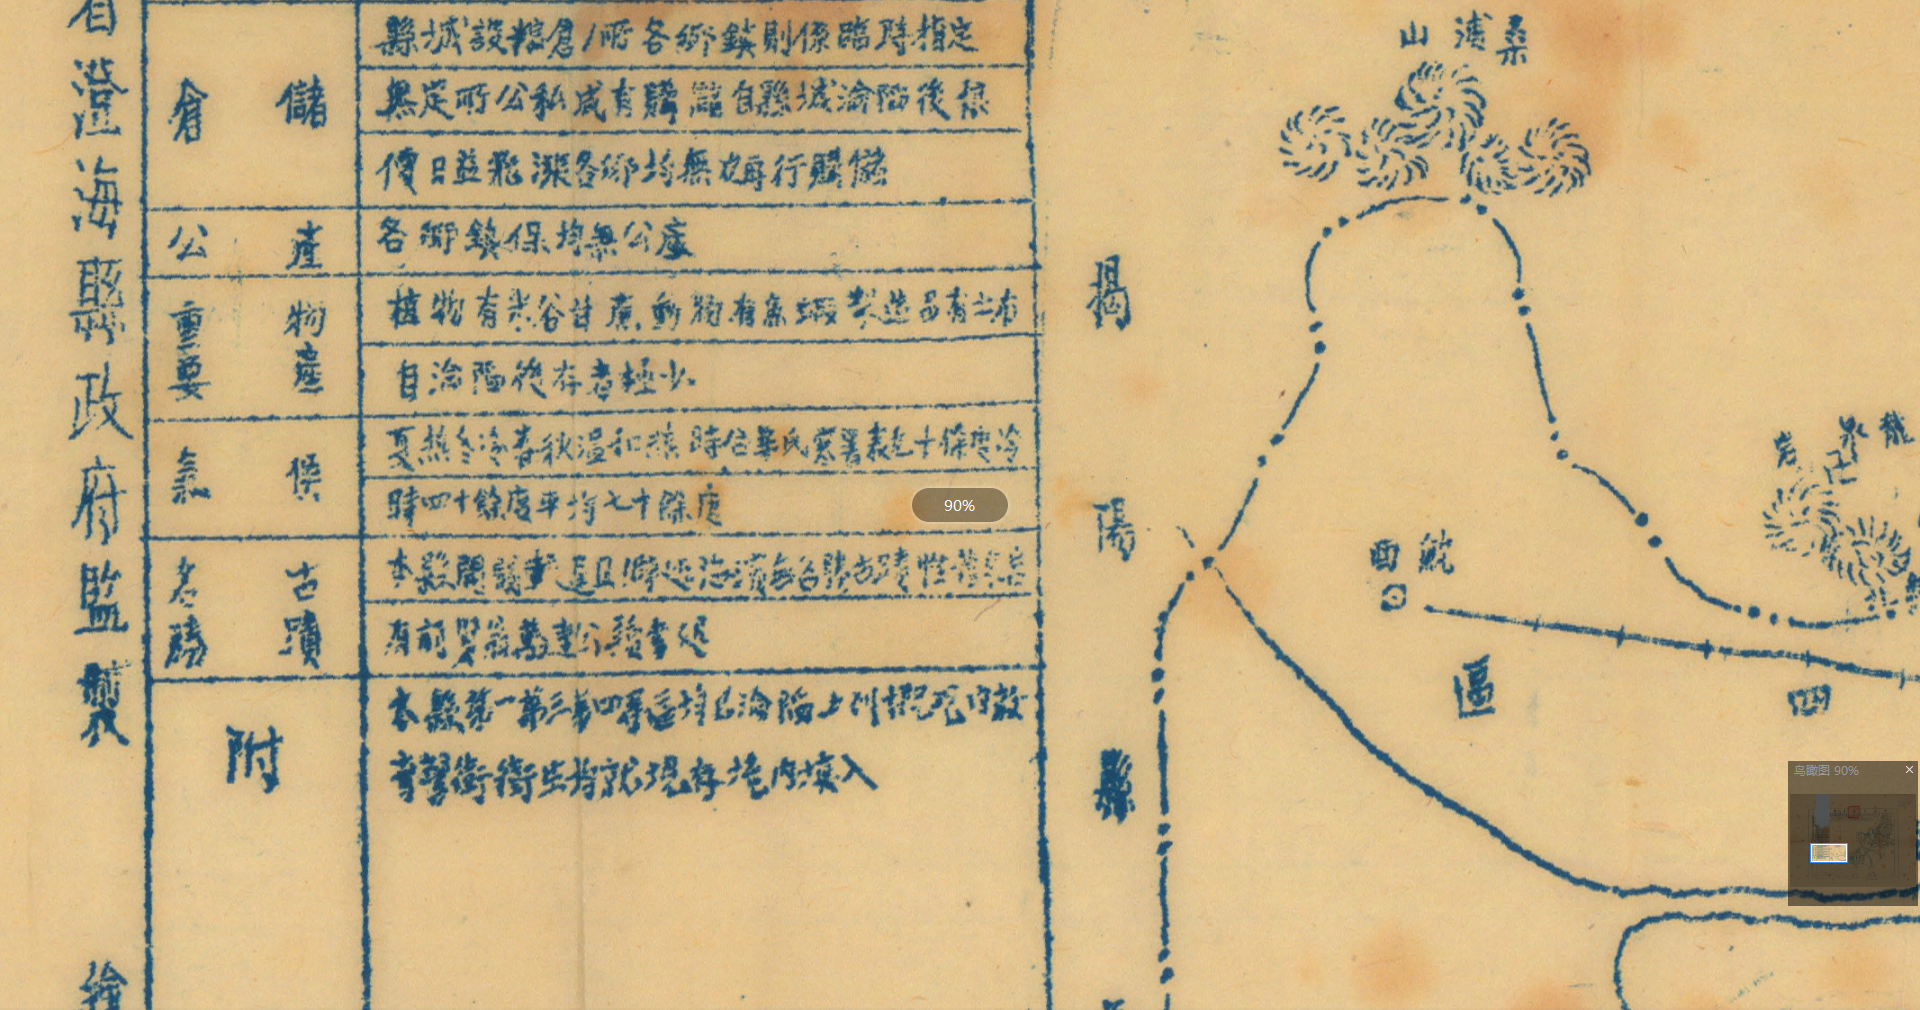 省澄海縣政府監製
倉儲
縣城設糧倉1所各鄉鎮則係臨時指定
無定所公私咸有購儲自縣城淪陷後糧
價日益飛漲各鄉均無力再行購儲
公產
各鄉鎮保均無公產
重要物產
植物有米谷甘蔗動物有魚蝦製造品有土布
自淪陷後存者極少
氣候
夏熱冬冷春秋溫和熱時在華氏寒暑表九十餘度冷
時四十餘度平均七十餘度
名勝古蹟
本縣開闢
且僻處海濱無名勝古蹟惟
有前
萬達公讀書處
附
本縣第一第三第四等區均已淪陷上列概況內政
育警衛衛生均就現存境內填入
桑浦山
揭陽縣
龍泉岩
鮀西
區
四
90%
鸟瞰图 90%